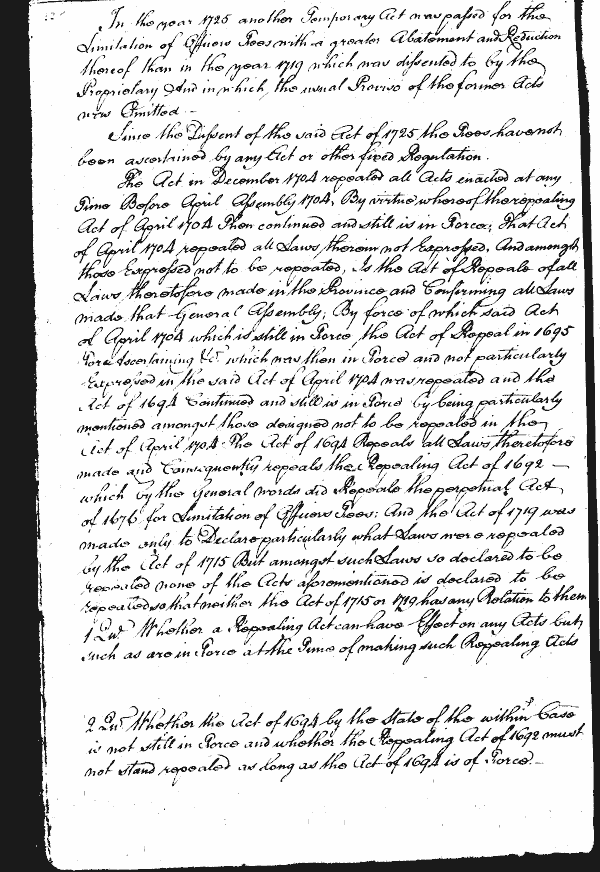 In the year 1725 another Temporary Act was passed for the
Limitation of Officers Fees with a greater Abatement and Reduction
thereof than in the year 1719 which was dissented to by the
Proprietary And in which, the usual Proviso of the former Acts
was Omitted -
Since the Dissent of the said Act of 1725 the Fees have not
been ascertained by any Act or other fixed Regulation.
The Act in December 1704 repealed all Acts enacted at any
Time Before April Assembly 1704, By virtue whereof the repealing
Act of April 1704 Then continued and still is in Force; That Act
of April 1704 repealed all Laws, therein not Expressed, And amongst
those Expressed not to be repealed, Is the Act of Repeale of all
Laws, theretofore made in the Province and Confirming all Laws
made that General Assembly; By force of which said Act
of April 1704 which is still in Force, the Act of Repeal in 1695
for Ascertaining &c which was then in Force and not particularly
Expressed in the said Act of April 1704 was repealed and the
Act of 1694 Continued and still is in Force by being particularly
mentioned amongst those designed not to be repealed in the
Act of April 1704. The Act of 1694 Repeals all Laws theretofore
made and Consequently repeals the Repealing Act of 1692 —
which by the General words did Repeale the perpetual Act
of 1676 for Limitation of Officers Fees; And the Act of 1719 was
made only to Declare particularly what Laws were repealed
by the Act of 1715 But amongst such Laws so declared to be
repealed none of the Acts aforementioned is declared to be
repealed so that neither the Act of 1715 or 1719 has any Relation to them
1 Qur Whether a Repealing Act can have Effect on any Acts but
such as are in Force at the Time of making such Repealing Acts
2 Qur Whether the Act of 1694 by the State of the within Case
is not still in Force and whether the Repealing Act of 1692 must
not stand repealed as long as the Act of 1694 is of Force. -